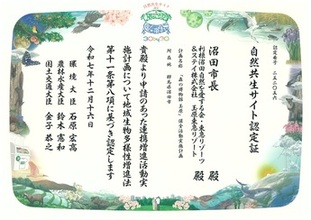 自然共生サイト認定証
沼田市長 殿
利根沼田自然を愛する会・東急リゾーツ
&ステイ株式会社 玉原東急リゾート 殿
貴殿より申請のあった連携増進活動実
施計画について地域生物多様性増進法
第十一条第八項に基づき認定します
令和七年十二月十六日
環境大臣 石原宏高
農林水産大臣 鈴木憲和
国土交通大臣 金子恭之